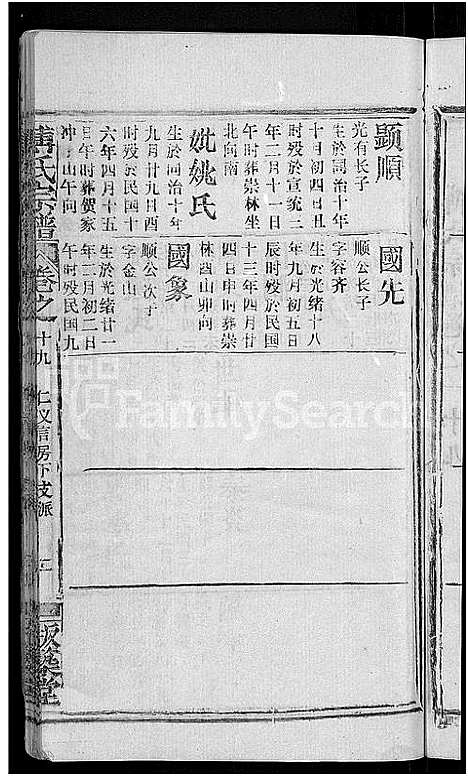 顯順
光有长子
生於同治十年
十月初四日丑
时殁於宣统二
年二月十一日
午时葬崇林坐
北向南
妣姚氏
生於同治十年
九月廿九日酉
时殁於民国十
六年四月十五
日午时葬贺家
冲 山午向
國先
顺公长子
字容齐
生於光绪十八
年九月初五日
辰时殁於民国
十三年四月廿
四日申时葬崇
林酉山卯向
國象
顺公次子
字金山
生於光绪廿一
年二月初二日
午时殁民国九
氏宗譜
卷之十九
仁义信房下支派
堂
FamilySearch